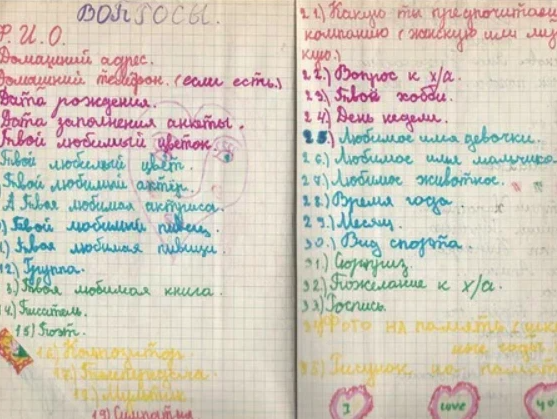 ВОПРОСЫ.
Ф. И. О.
Домашний адрес.
Домашний телефон. (если есть.)
Дата рождения.
Дата заполнения анкеты.
Твой любимый цветок.
Твой любимый цвет.
Твой любимый актёр.
А твоя любимая актриса.
) Твой любимый певец.
) Твоя любимая певица.
12.) Группа.
3.) Твоя любимая книга.
14.) Писатель.
15.) Поэт.
16.) Композитор.
17.) Телепрограмма.
18.) Мультик
19) Симпатия
21.) Какую ты предпочитаеш
компанию (женскую или муж
кую.)
22.) Вопрос к х/а.
23.) Твой хобби.
24.) День недели.
25.) Любимое имя девочки.
26.) Любимое имя мальчико
27.) Любимое животное.
28.) Время года
29.) Месяц.
30.) Вид спорта
31.) Сюрприз.
32.) Пожелание к х/а.
33.) Роспись.
34) Фото на память (шк
ные годы
35.) Рисунок на память
I
love